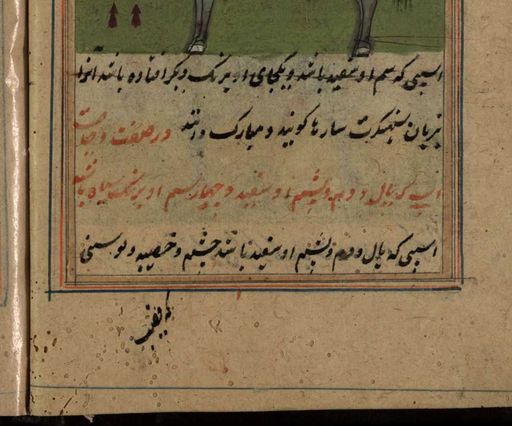 اسپی که سم او سفید باشد و یکجای او برنک دیگر افتاده باشد آنرا
بزبان سنسکرت سارها کویند و مبارک دانند در صفت
اسپ که یال و دم و پشم او سفید و چهار سم او برنک سیاه باشد
اسپی که یال و دم و پشم او سفید باشد چشم و خصیه و
که